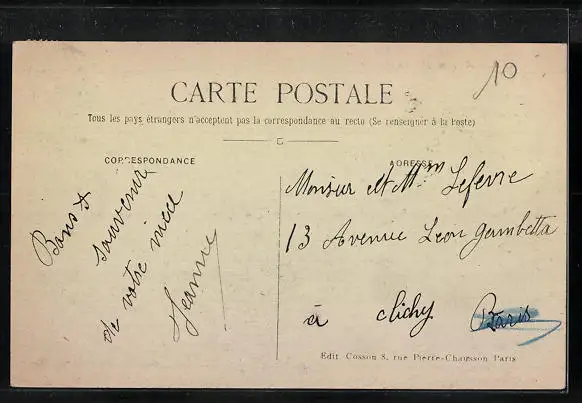 10
CARTE POSTALE
Tous les pays étrangers n'acceptent pas la correspondance au recto (Se renseigner à la Poste)
CORRESPONDANCE
Bons
souvenir
de votre niece
Jeanne
ADRESSE
Monsieur et Mm Lefevre
13 Avenue Leon gambetta
à clichy Paris
Edit Cosson 8, rue Pierre-Chausson Paris